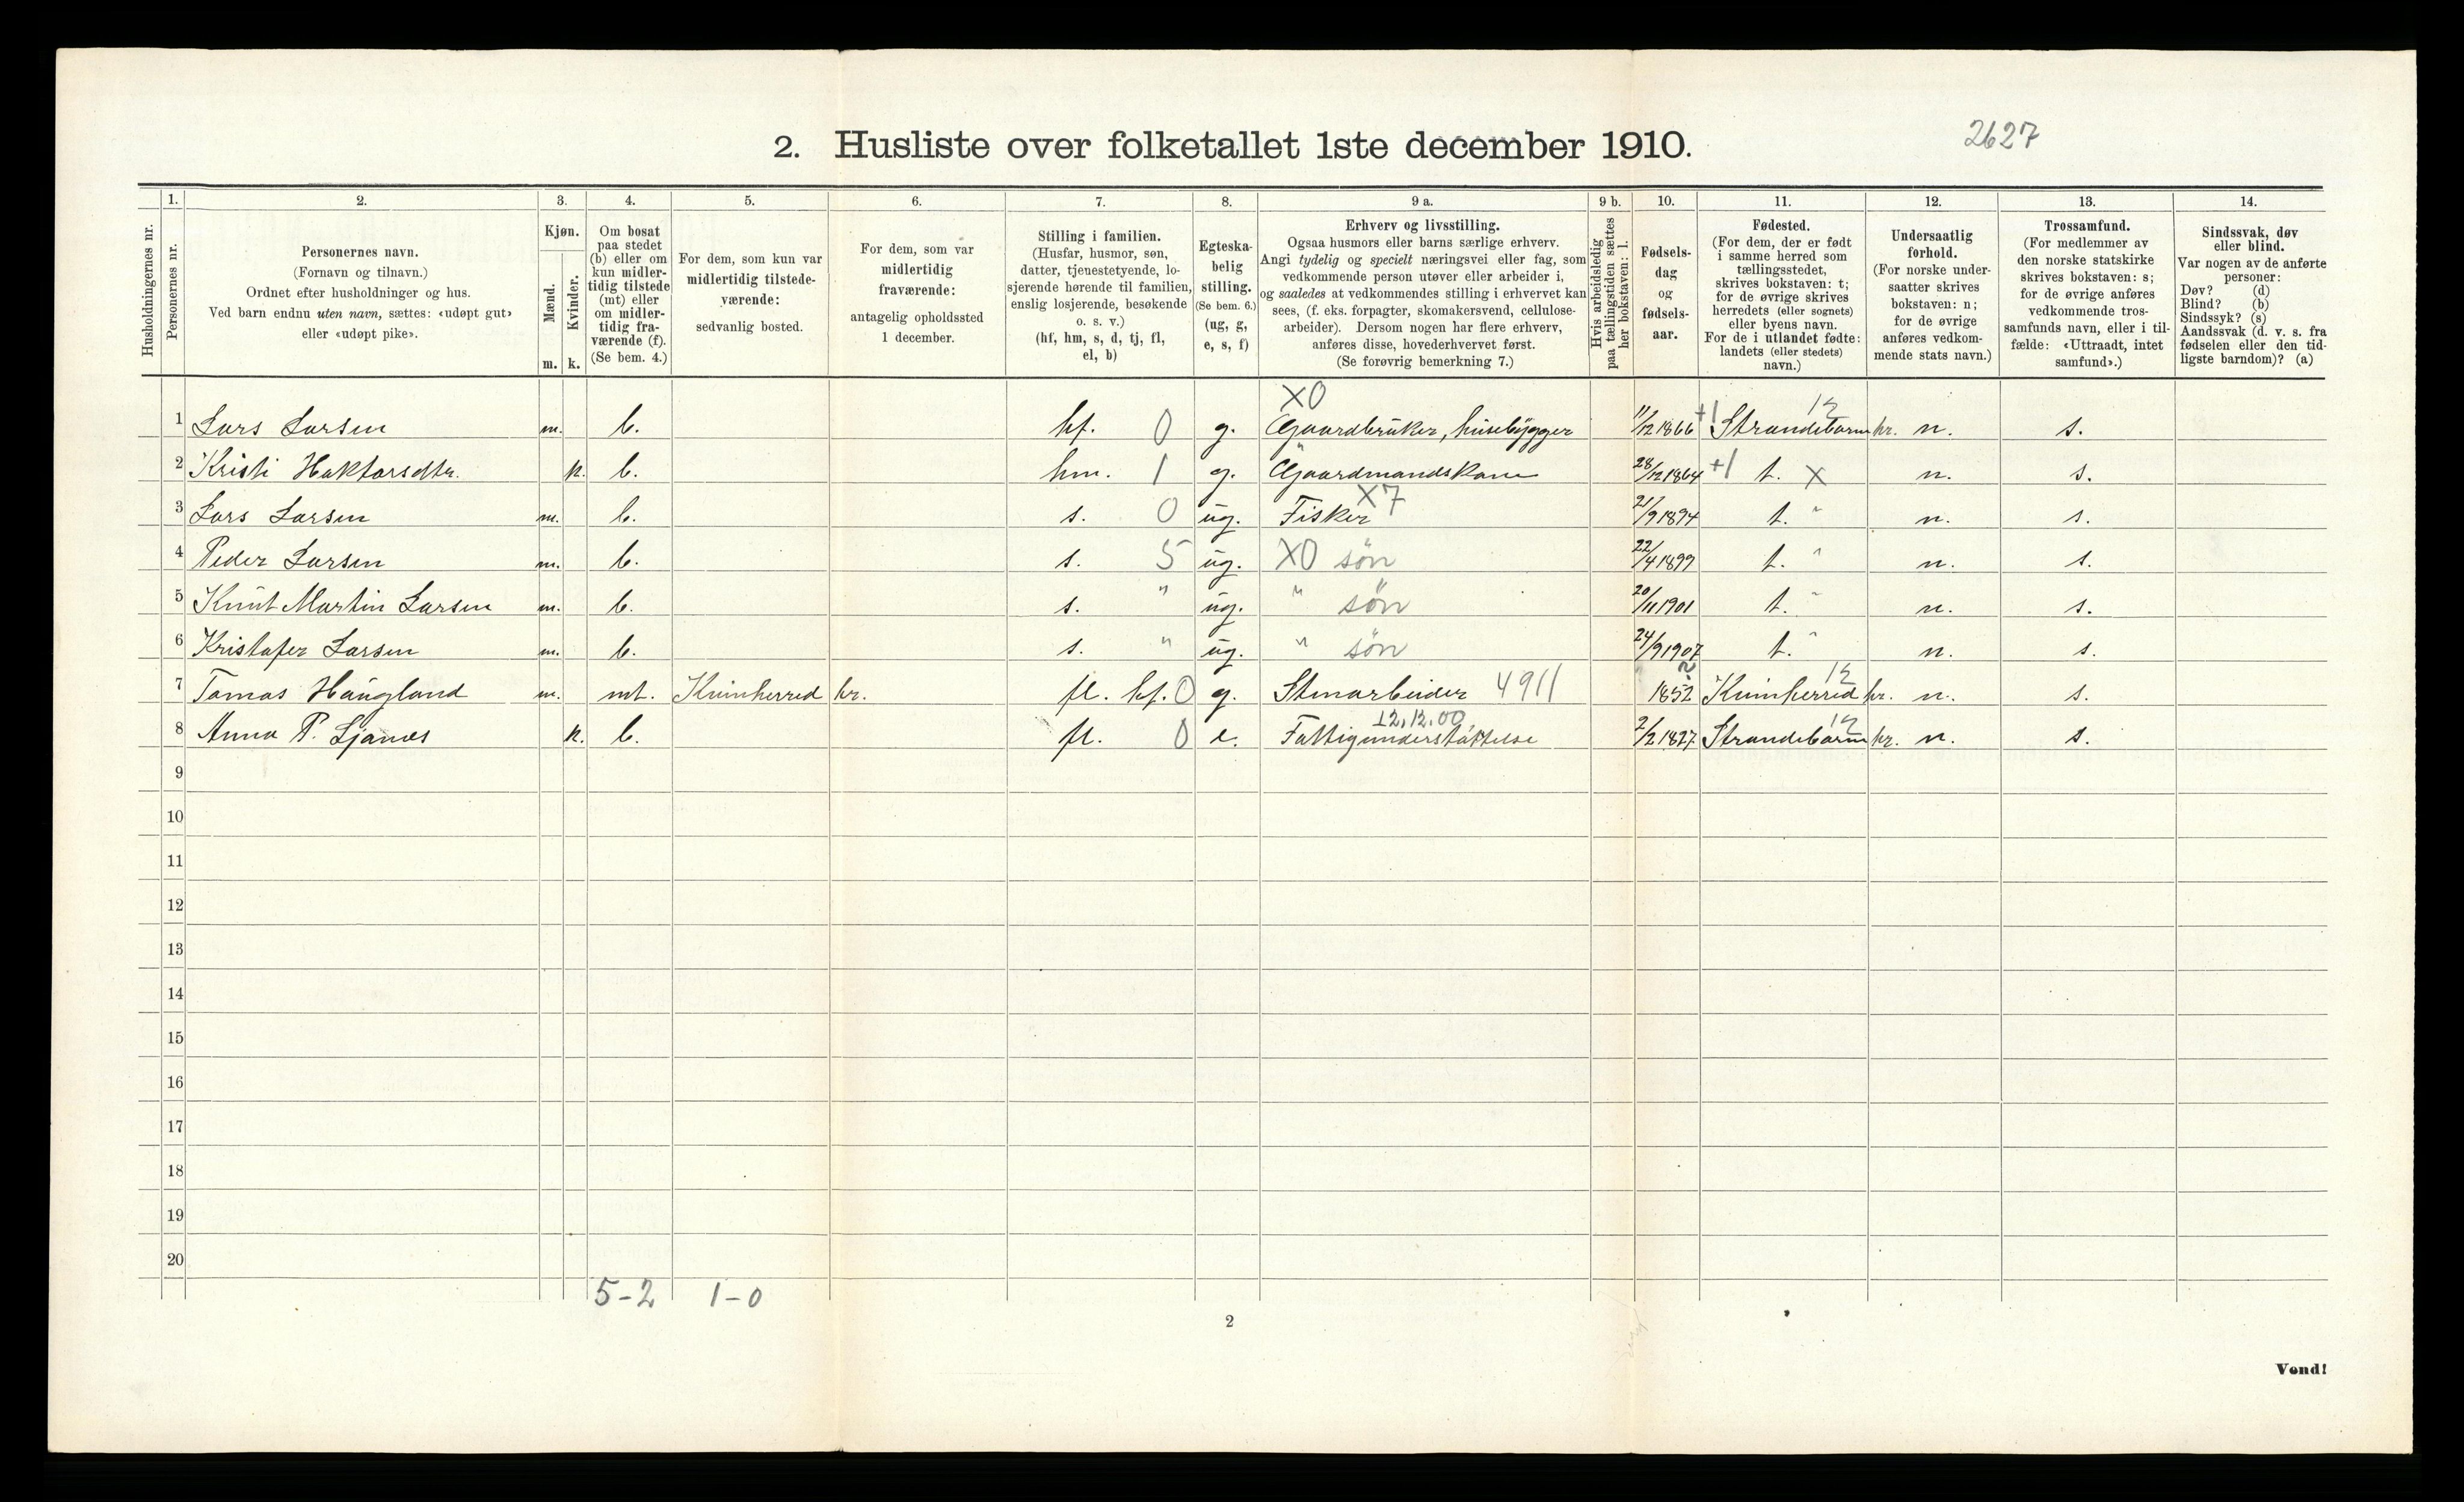 2. Husliste over folketallet 1ste december 1910.
2627
Husholdningernes nr.
1. Personernes nr.
2. Personernes navn.
(Fornavn og tilnavn.)
Ordnet efter husholdninger og hus.
Ved barn endnu uten navn, sættes: «udøpt gut»
eller «udøpt pike».
3. Kjøn.
Mænd. m.
Kvinder. k.
4. Om bosat
paa stedet
(b) eller om
kun midler-
tidig tilstede
(mt) eller
om midler-
tidig fra-
værende (f).
(Se bem. 4.)
5. For dem, som kun var
midlertidig tilstede-
værende:
sedvanlig bosted.
6. For dem, som var
midlertidig
fraværende:
antagelig opholdssted
1 december.
7. Stilling i familien.
(Husfar, husmor, søn,
datter, tjenestetyende, lo-
sjerende hørende til familien,
enslig losjerende, besøkende
o. s. v.)
(hf, hm, s, d, tj, fl,
el, b)
8. Egteska-
belig
stilling.
(Se bem. 6.)
(ug, g,
e, s, f)
9 a. Erhverv og livsstilling.
Ogsaa husmors eller barns særlige erhverv.
Angi tydelig og specielt næringsvei eller fag, som
vedkommende person utøver eller arbeider i,
og saaledes at vedkommendes stilling i erhvervet kan
sees, (f. eks. forpagter, skomakersvend, cellulose-
arbeider). Dersom nogen har flere erhverv,
anføres disse, hovederhvervet først.
(Se forøvrig bemerkning 7.)
9 b. Hvis arbeidsledig
paa tællingstiden sættes
her bokstaven: l.
10. Fødsels-
dag
og
fødsels-
aar.
11. Fødested.
(For dem, der er født
i samme herred som
tællingsstedet,
skrives bokstaven: t;
for de øvrige skrives
herredets (eller sognets)
eller byens navn.
For de i utlandet fødte:
landets (eller stedets)
navn.)
12. Undersaatlig
forhold.
(For norske under-
saatter skrives
bokstaven: n;
for de øvrige
anføres vedkom-
mende stats navn.)
13. Trossamfund.
(For medlemmer av
den norske statskirke
skrives bokstaven: s;
for de øvrige anføres
vedkommende tros-
samfunds navn, eller i til-
fælde: «Uttraadt, intet
samfund».)
14. Sindssvak, døv
eller blind.
Var nogen av de anførte
personer:
Døv? (d)
Blind? (b)
Sindssyk? (s)
Aandssvak (d. v. s. fra
fødselen eller den tid-
ligste barndom)? (a)
X0 12
1 Lars Larsen m. b. hf. 0 g. Gaardbruker, husebygger 11/12 1866 +1 Strandebarm hr. n. s.
2 Kristi Haktorsdtr. k. b. hm. 1 g. Gaardmandskone 28/12 1864 +1 t. X n. s.
X7
3 Lars Larsen m. b. s. 0 ug. Fisker 21/9 1894 t. " n. s.
4 Peder Larsen m. b. s. 5 ug. X0 søn 22/4 1899 t. " n. s.
5 Knut Martin Larsen m. b. s. " ug. " søn 20/11 1901 t. " n. s.
6 Kristafer Larsen m. b. s. " ug. " søn 24/9 1907 t. " n. s.
? 12
7 Tomas Haugland m. mt. Kvinherred hr. fl. hf. 0 g. Stenarbeider 4911 1852 Kvinherred hr. n. s.
12,12.00 12
8 Anna P. Ljanes k. b. fl. 0 e. Fattigunderstøttelse 2/2 1827 Strandebarm hr. n. s.
9
10
11
12
13
14
15
16
17
18
19
20
5-2 1-0
2
Vend!